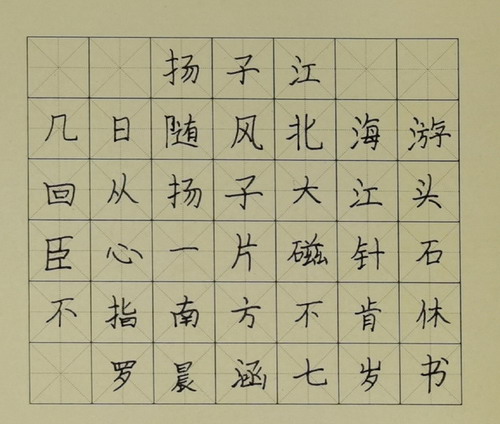 扬子江
几日随风北海游
回从扬子大江头
臣心一片磁针石
不指南方不肯休
罗晨涵七岁书